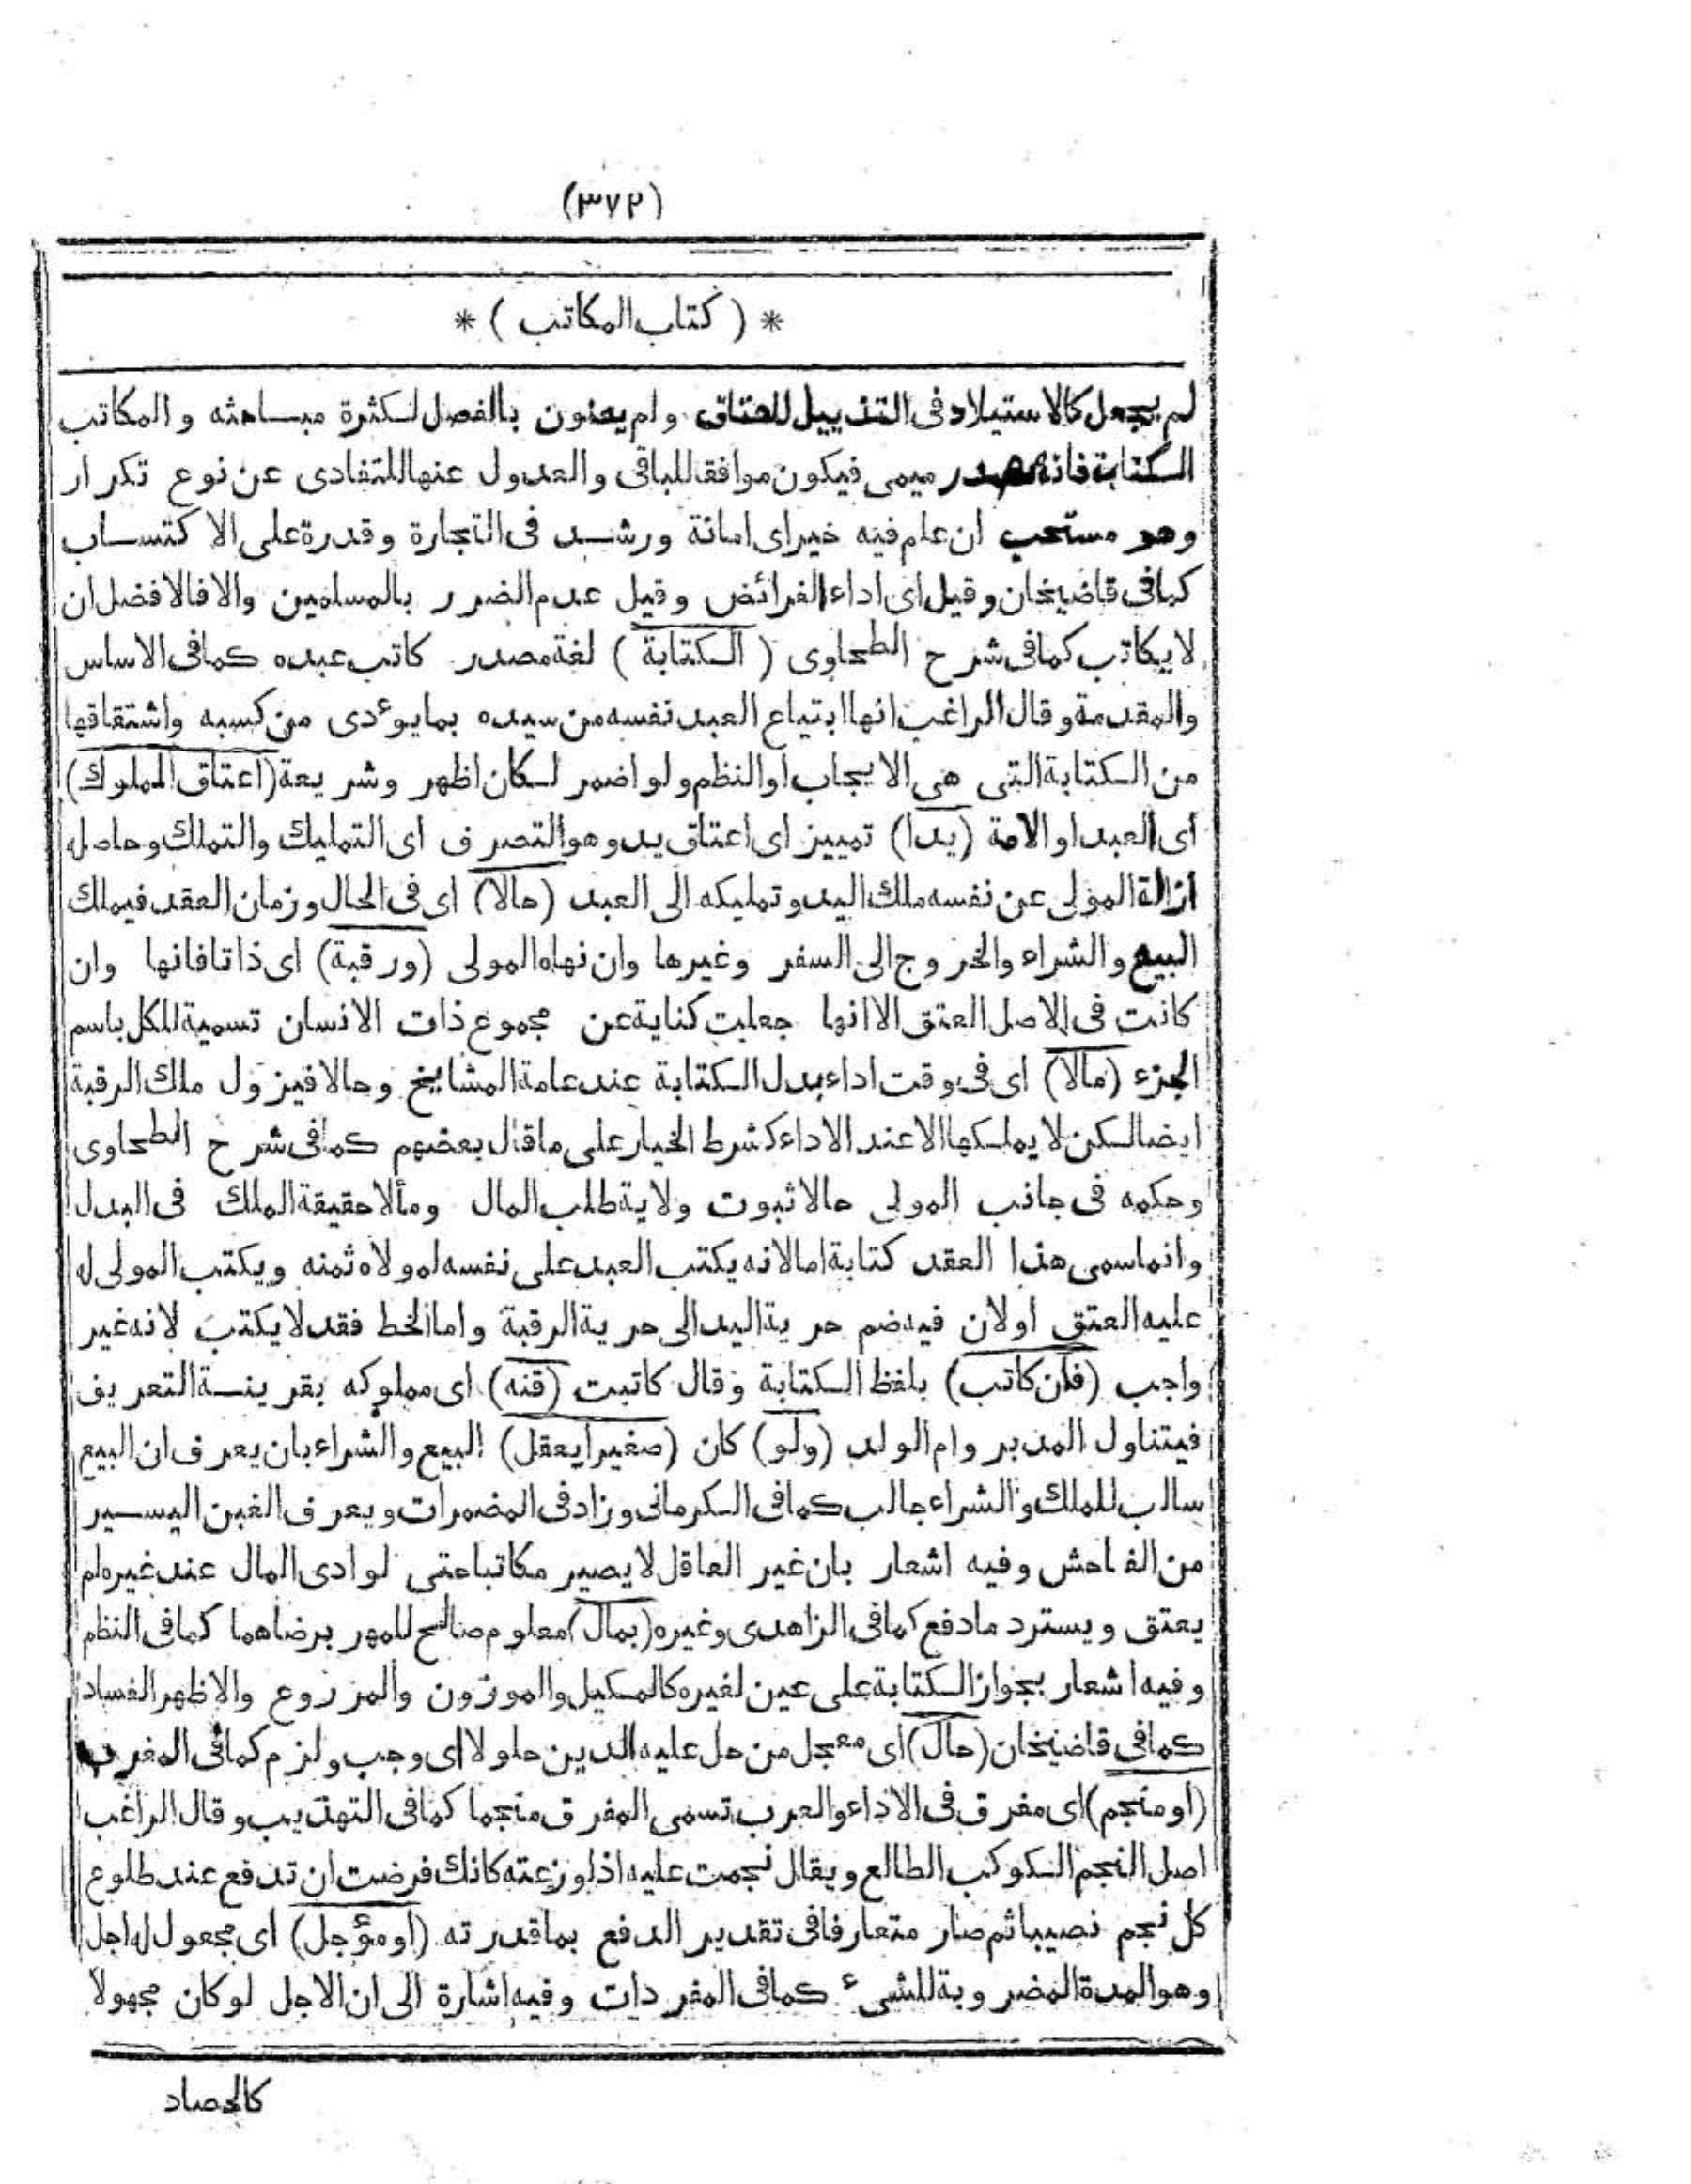 (٣٧٢)
* ( كتاب المكاتب ) *
لم يجعل كالاستيلاد فى التذييل للعتاق ولم يعنون بالفصل لكثرة مباحثه والمكاتب
الكتابة فانه مصدر ميمى فيكون موافقا للباقى والعدول عنها للتفادى عن نوع تكرار
وهو مستحب ان علم فيه خيرا اى امانة ورشد فى التجارة وقدرة على الاكتساب
كما فى قاضيخان وقيل اى اداء الفرائض وقيل عدم الضرر بالمسلمين والا فالافضل ان
لا يكاتب كما فى شرح الطحاوى ( الكتابة ) لغة مصدر كاتب عبده كما فى الاساس
والمقدمة وقال الراغب انها ابتياع العبد نفسه من سيده بما يوءدى من كسبه واشتقاقها
من الكتابة التى هى الايجاب او النظم ولو اضمر لكان اظهر وشريعة (اعتاق المملوك)
اى العبد او الامة (يدا) تمييز اى اعتاق يد وهو التصرف اى التمليك والتملك وحاصله
ازالة المولى عن نفسه ملك اليد وتمليكه الى العبد (حالا) اى فى الحال وزمان العقد فيملك
البيع والشراء والخروج الى السفر وغيرها وان نهاه المولى (ورقبة) اى ذاتا فانها وان
كانت فى الاصل العتق الا انها جعلت كناية عن مجموع ذات الانسان تسمية للكل باسم
الجزء (مآلا) اى فى وقت اداء بدل الكتابة عند عامة المشايخ وحالا فيزول ملك الرقبة
ايضا لكن لا يملكها الا عند الاداء كشرط الخيار على ما قال بعضهم كما فى شرح الطحاوى
وحكمه فى جانب المولى حالا ثبوت ولاية طلب المال ومآلا حقيقة الملك فى البدل
وانما سمى هذا العقد كتابة اما لانه يكتب العبد على نفسه لمولاه ثمنه ويكتب المولى له
عليه العتق او لان فيه ضم حرية اليد الى حرية الرقبة واما الخط فقد لا يكتب لانه غير
واجب (فان كاتب) بلفظ الكتابة وقال كاتبت (قنه) اى مملوكه بقرينة التعريف
فيتناول المدبر وام الولد (ولو) كان (صغيرا يعقل) البيع والشراء بان يعرف ان البيع
سالب للملك والشراء جالب كما فى الكرمانى وزاد فى المضمرات ويعرف الغبن اليسير
من الفاحش وفيه اشعار بان غير العاقل لا يصير مكاتبا حتى لو ادى المال عند غيره لم
يعتق ويسترد ما دفع كما فى الزاهدى وغيره (بمال) معلوم صالح للمهر برضاهما كما فى النظم
وفيه اشعار بجواز الكتابة على عين لغيره كالمكيل والموزون والمزروع والاظهر الفساد
كما فى قاضيخان (حال) اى معجل من حل عليه الدين حلولا اى وجب ولزم كما فى المغرب
(او منجم) اى مفرق فى الاداء والعرب تسمى المفرق منجما كما فى التهذيب وقال الراغب
اصل النجم الكوكب الطالع ويقال نجمت عليه اذا وزعته كانك فرضت ان تدفع عند طلوع
كل نجم نصيبا ثم صار متعارفا فى تقدير الدفع بما قدرته (او مؤجل) اى مجعول له اجل
وهو المدة المضروبة للشىء كما فى المفردات وفيه اشارة الى ان الاجل لو كان مجهولا
كالحصاد